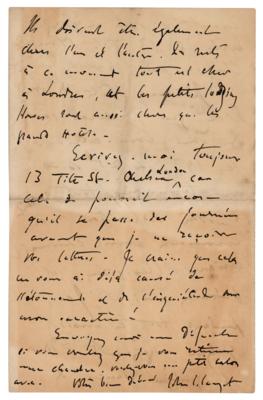 Ils doivent être également
chers l'un et l'autre. Du reste
à ce moment tout est cher
à Londres, et les petits lodging
Houses sont aussi chers que les
grands Hotels.
Ecrivez-moi toujours
13 Tite St. Chelsea London car
cela se pourrait encore
qu'il se passe des journées
avant que je ne reçoive
vos lettres. Je crains que cela
ne vous ai déjà causé de
l'étonnement et de l'inquiétude sur
mon caractère!
Envoyez moi une Dépêche
si vous voulez que je vous retienne
une chambre, voulez-vous un petit salon
avec. Votre bien dévoué John S. Sargent